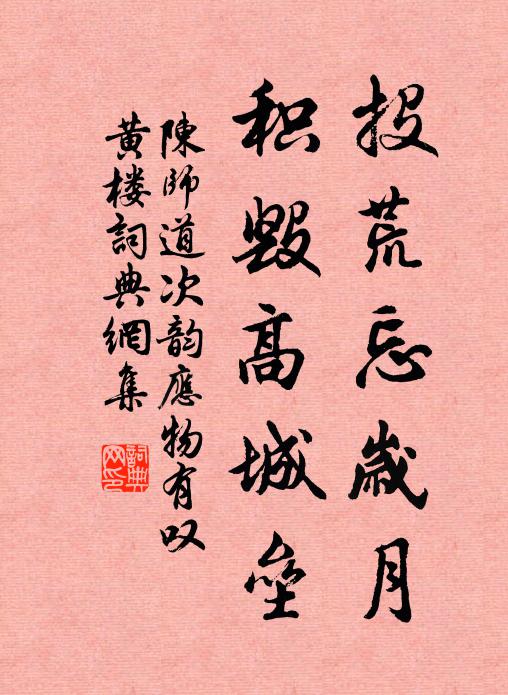 投荒忘歲月
积毀高城壘
陳師道次韵應物有叹
黄楼詞典網集
詞典网印